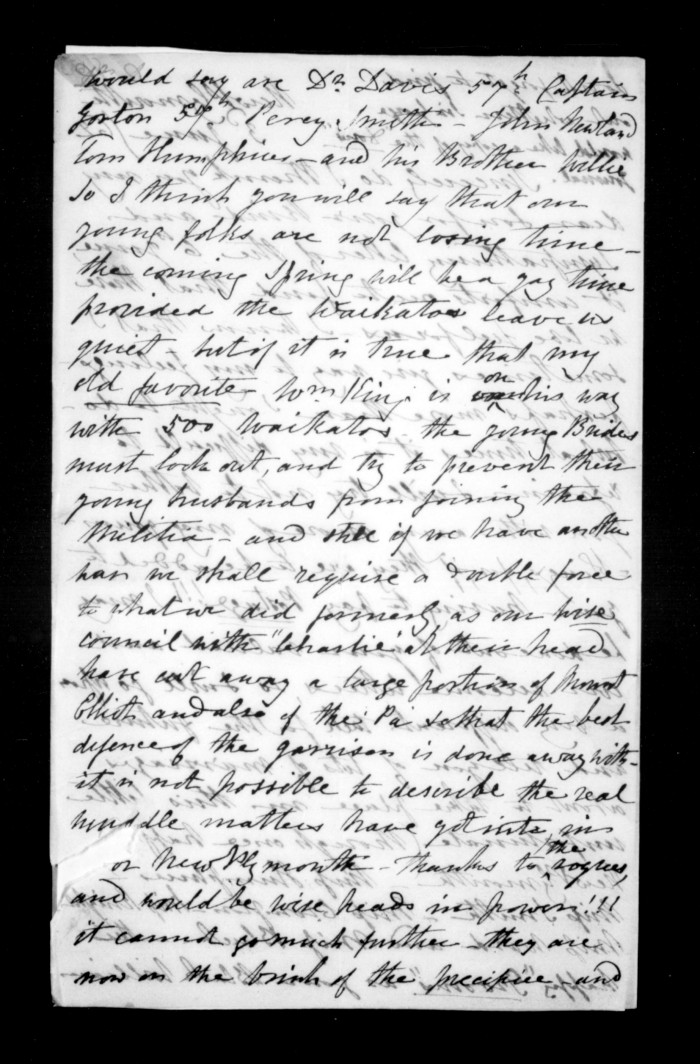 would say are Dr. Davis 57th Captain
Gorton 57th Percy Smith - John Newland
Tom Humphries - and his Brother Willie
So I think you will say that our
young folks are not losing time -
the coming Spring will be a gay time
provided the Waikatos leave us
quiet - but if it is true that my
old favorite Wm King is on his way
with 500 Waikatos the young Brides
must look out, and try to prevent their
young husbands from joining the
Militia - and still if we have another
war we shall require a double force
to what we did formerly, as our wise
council with "Charlie" at their head
have cut away a large portion of Mount
Elliot and also of the Pa so that the best
defence of the garrison is done away with -
it is not possible to describe the real
muddle matters have got into, in
or New Plymouth - thanks to the rogues,
and would be wise heads in power!!!
it cannot go much further - they are
now on the brink of the precipice - and